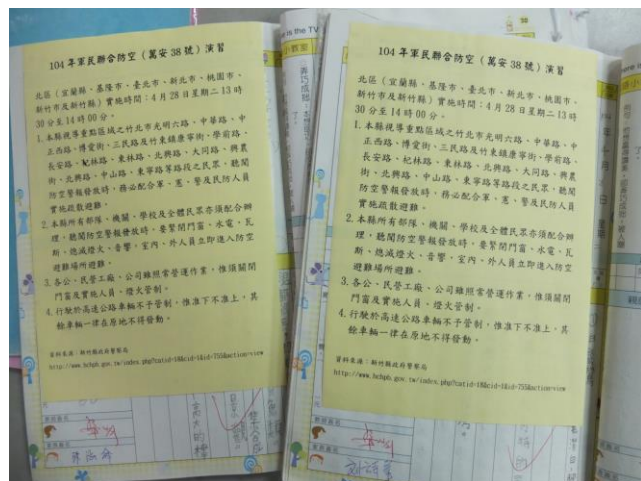 104年軍民聯合防空（萬安38號）演習
北區（宜蘭縣、基隆市、臺北市、新北市、桃園市、
新竹市及新竹縣）實施時間：4月28日星期二13時
30分至14時00分。
1.本縣視導重點區域之竹北市光明六路、中華路、中
正西路、博愛街、三民路及竹東鎮康寧街、學前路、
長安路、杞林路、東林路、北興路、大同路、興農
街、北興路、中山路、東寧路等路段之民眾，聽聞
防空警報發放時，務必配合軍、憲、警及民防人員
實施疏散避難。
2.本縣所有部隊、機關、學校及全體民眾亦須配合辦
理，聽聞防空警報發放時，要緊閉門窗、水電、瓦
斯、熄滅燈火、音響，室內、外人員立即進入防空
避難場所避難。
3.各公、民營工廠、公司雖照常營運作業，惟須關閉
門窗及實施人員、燈火管制。
4.行駛於高速公路車輛不予管制，惟准下不准上，其
餘車輛一律在原地不得發動。
資料來源：新竹縣政府警察局
104年軍民聯合防空（萬安38號）演習
北區（宜蘭縣、基隆市、臺北市、新北市、桃園市、
新竹市及新竹縣）實施時間：4月28日星期二13時
30分至14時00分。
1.本縣視導重點區域之竹北市光明六路、中華路、中
正西路、博愛街、三民路及竹東鎮康寧街、學前路、
長安路、杞林路、東林路、北興路、大同路、興農
街、北興路、中山路、東寧路等路段之民眾，聽聞
防空警報發放時，務必配合軍、憲、警及民防人員
實施疏散避難。
2.本縣所有部隊、機關、學校及全體民眾亦須配合辦
理，聽聞防空警報發放時，要緊閉門窗、水電、瓦
斯、熄滅燈火、音響，室內、外人員立即進入防空
避難場所避難。
3.各公、民營工廠、公司雖照常營運作業，惟須關閉
門窗及實施人員、燈火管制。
4.行駛於高速公路車輛不予管制，惟准下不准上，其
餘車輛一律在原地不得發動。
資料來源：新竹縣政府警察局